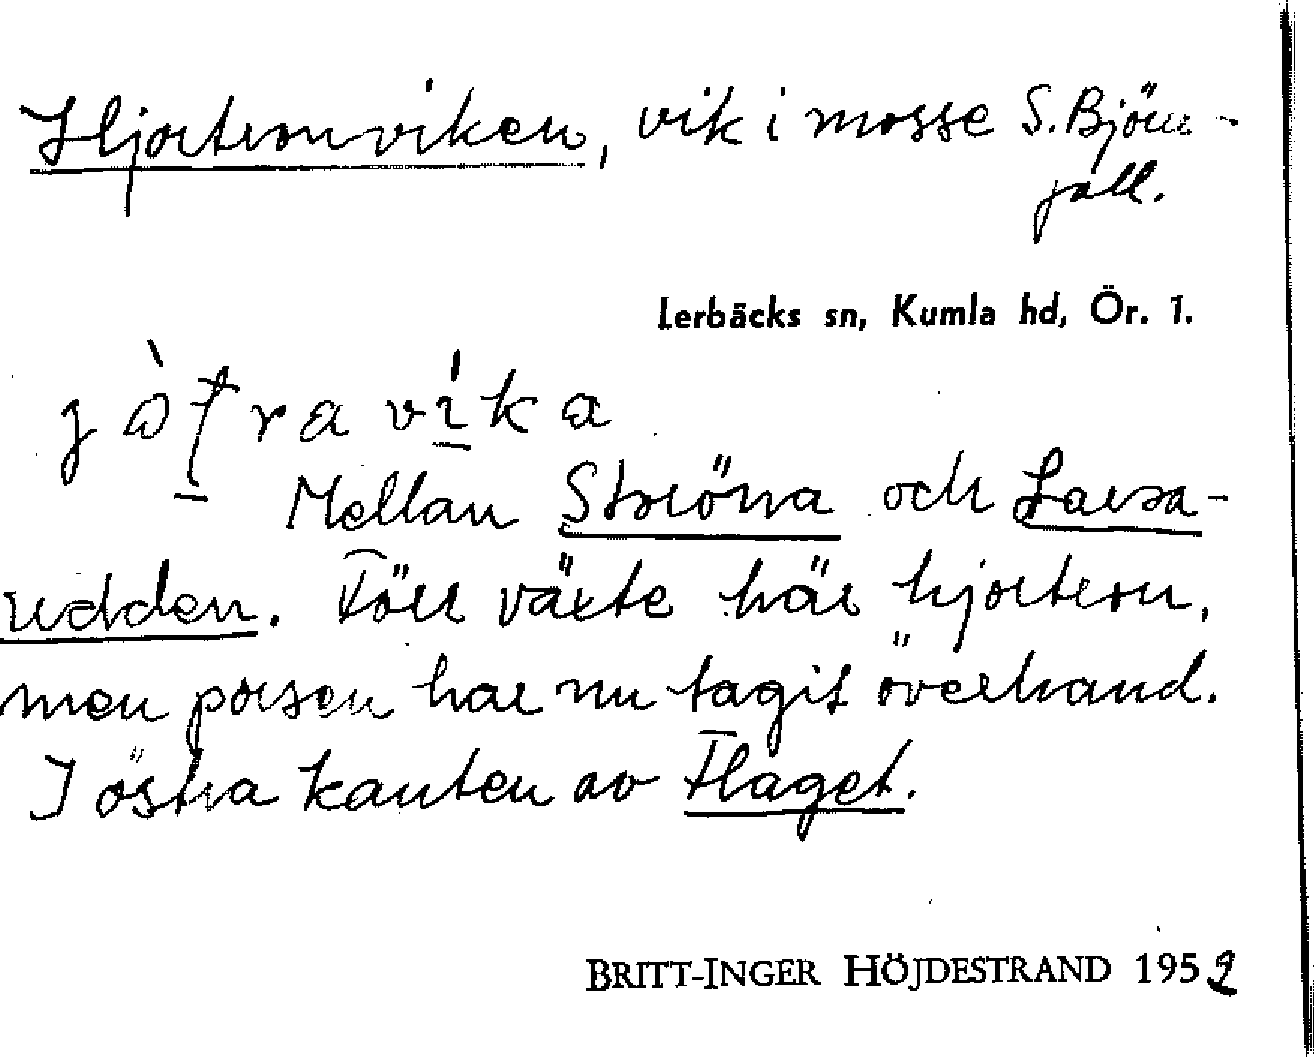 Hjortronviken, vik i mosse S. Björn-
fall.
Lerbäcks sn, Kumla hd, Ör. 1.
Mellan Storöna och Larsa-
udden. Förr växte här hjortron,
men porsen har nu tagit överhand.
I östra kanten av Flaget.
BRITT-INGER HÖJDESTRAND 1952